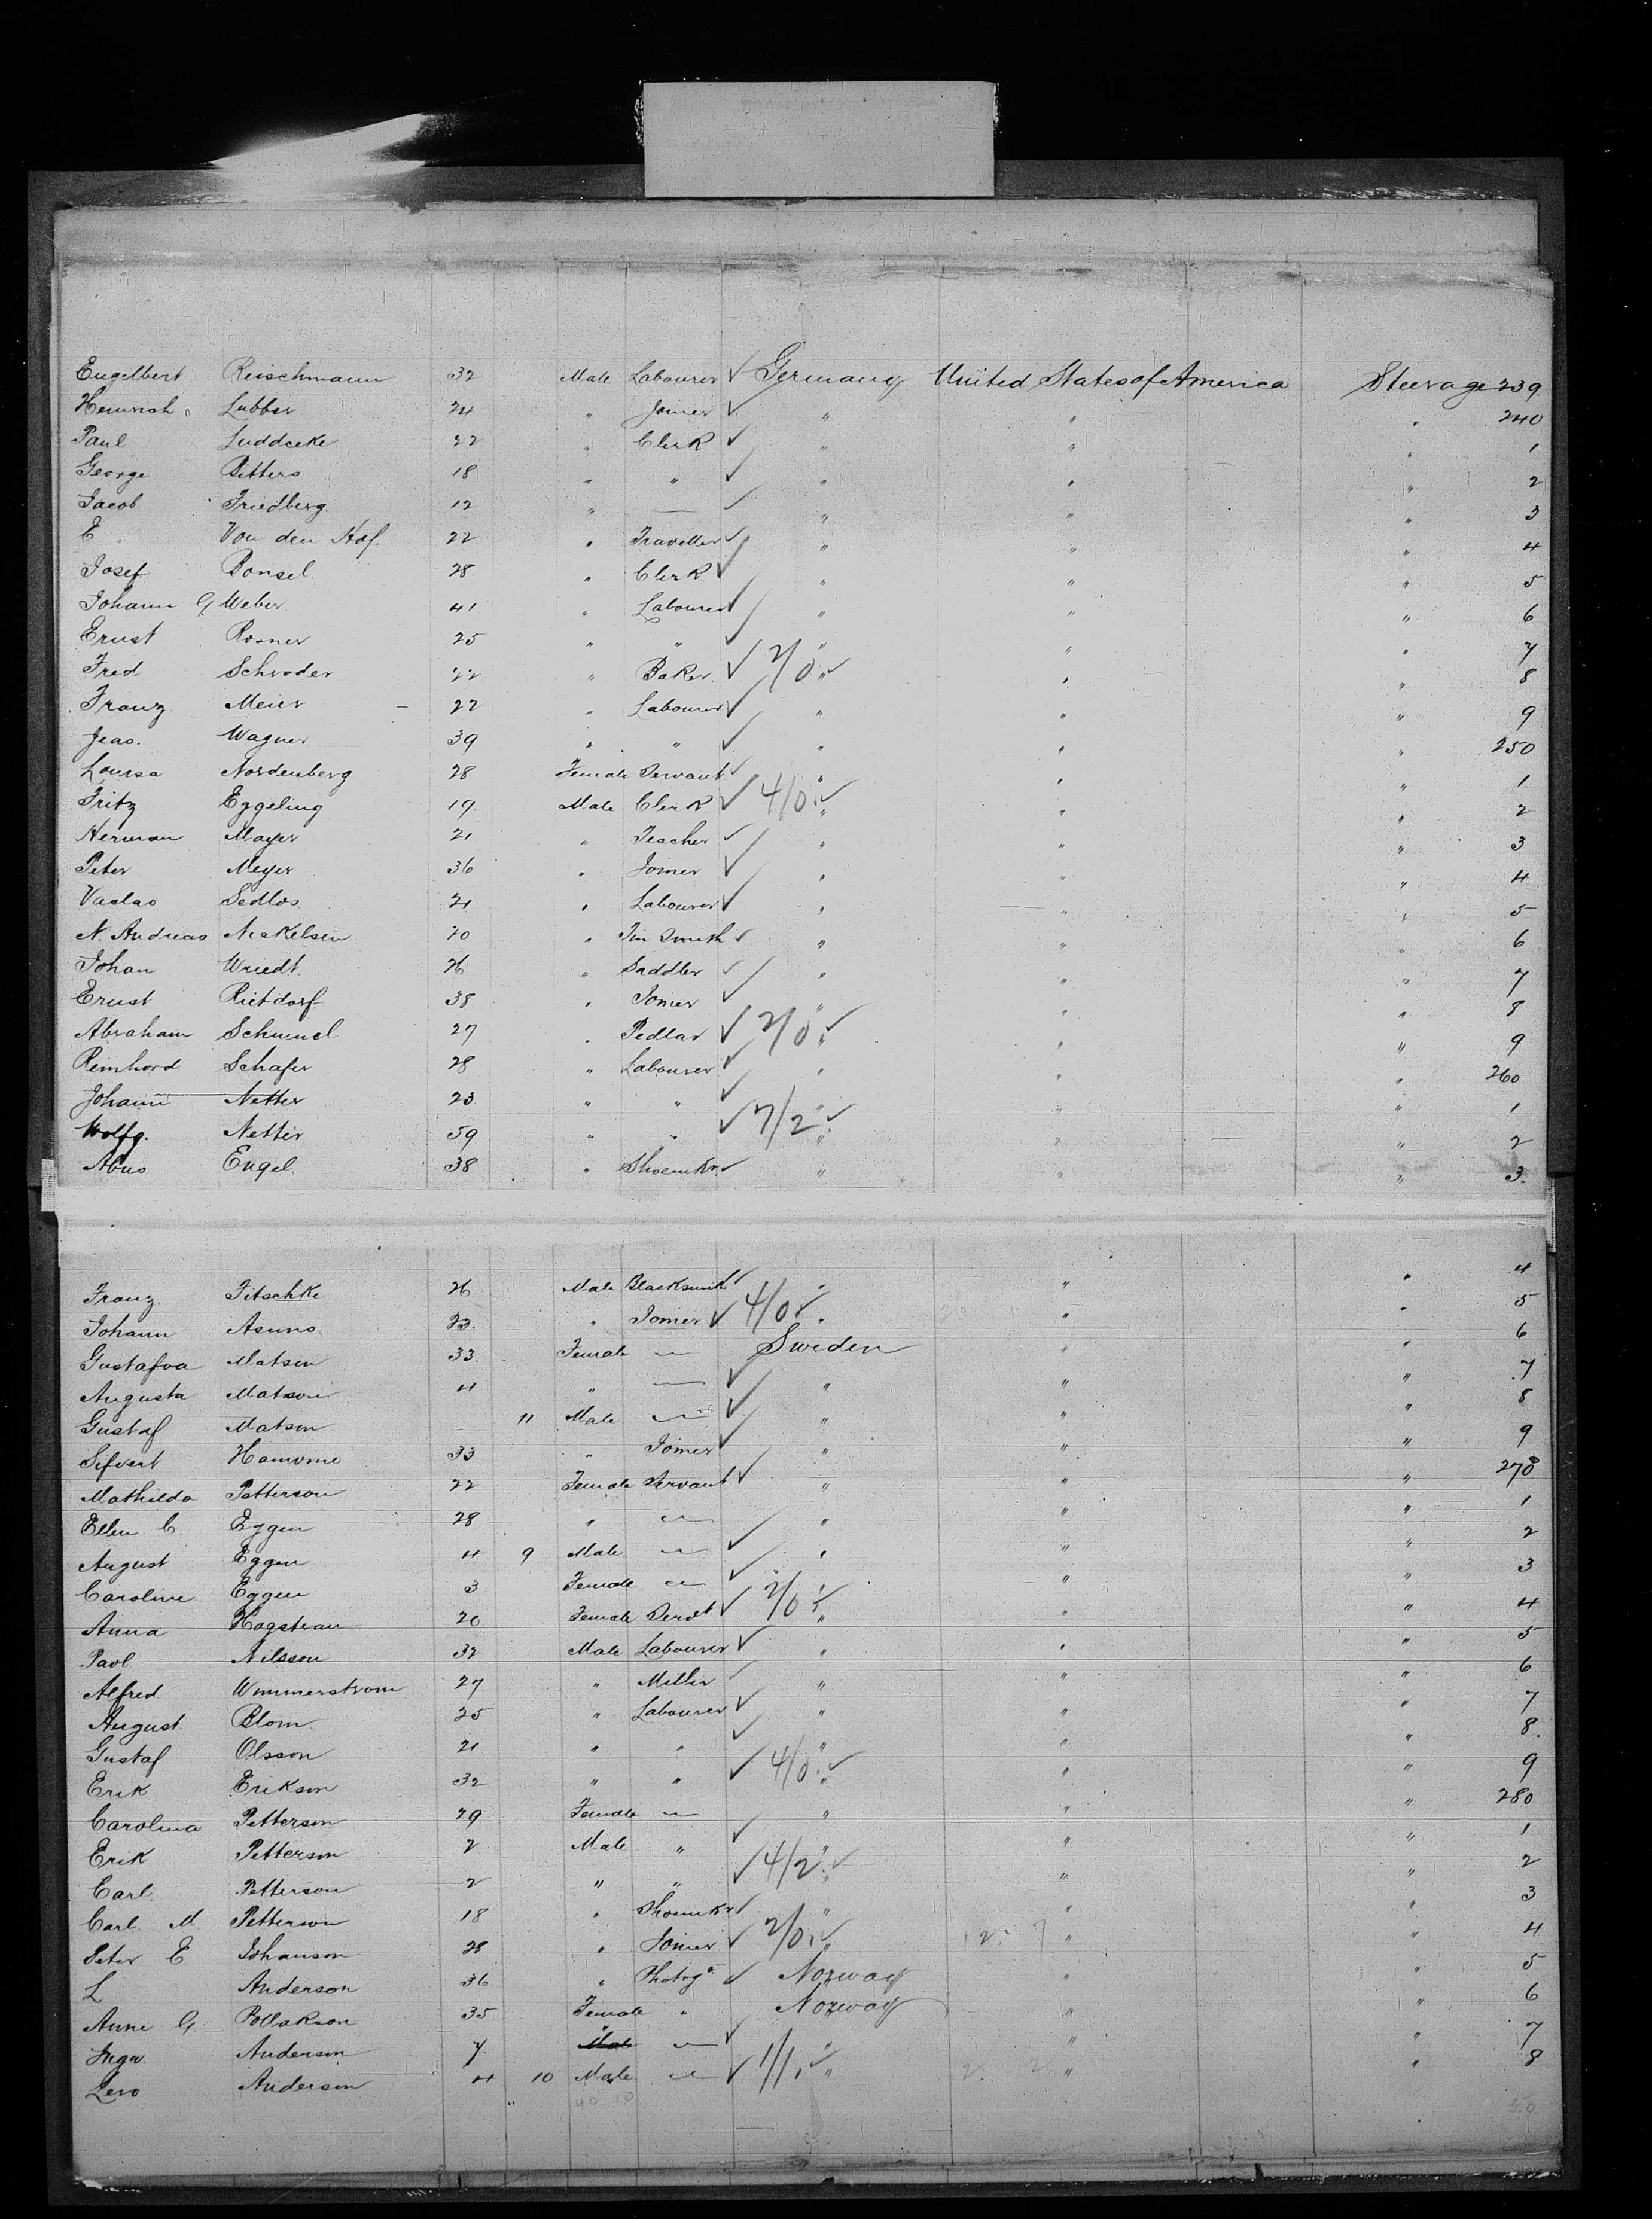 Engelbert Reischmann 32 Male Labourer ✓ Germany United States of America Steerage 239
Heinrich Lubber 24 " Joiner ✓ " " " 240
Paul Luddecke 22 " Clerk ✓ " " " 1
George Pitters 18 " " ✓ " " " 2
Jacob Friedberg 12 " — ✓ " " " 3
E Von den Hof 22 " Traveller ✓ " " " 4
Josef Ponsel 28 " Clerk ✓ " " " 5
Johann G Weber 41 " Labourer ✓ " " " 6
Ernst Rosner 25 " " ✓ " " " 7
Fred Schroder 22 " Baker ✓ 7/0 ✓ " " " 8
Franz Meier 22 " Labourer ✓ " " " 9
Jeas. Wagner 39 " " ✓ " " " 250
Lousa Nordenberg 28 Female Servant ✓ " " " 1
Fritz Eggeling 19 Male Clerk ✓ 4/0 ✓ " " " 2
Herman Mayer 21 " Teacher ✓ " " " 3
Peter Meyer 36 " Joiner ✓ " " " 4
Vaclav Sedlos 21 " Labourer ✓ " " " 5
N. Andreas Mickelsen 20 " Tin Smith ✓ " " " 6
Johan Wriedt 26 " Saddler ✓ " " " 7
Ernst Rietdorf 38 " Joiner ✓ " " " 8
Abraham 27 " Pedlar ✓ 7/0 ✓ " " " 9
Reinhard Schafer 28 " Labourer ✓ " " " 260
Johann Netter 23 " " ✓ " " " 1
Wolfg. Netter 59 " " ✓ 7/2 ✓ " " " 2
Engel 38 " Shoemkr ✓ " " " 3.
Franz Titschke 26 Male Blacksmith ✓ " " " 4
Johann Asuns 23. " Joiner ✓ 4/0 ✓ " " " 5
Gustafva Matson 33. Female — Sweden " " 6
Augusta Matson 4 " — ✓ " " " 7
Gustaf Matson 11 Male — ✓ " " " 8
Sifvert 33 " Joiner ✓ " " " 9
Mathilda Petterson 22 Female Servant ✓ " " " 270
Ellen C Eggen 28 " — " " " 1
August Eggen 4 9 Male — ✓ " " " 2
Caroline Eggen 3 Female — ✓ " " " 3
Anna Hagstran 20 Female Servt ✓ 7/0 ✓ " " " 4
Paol Nilsson 32 Male Labourer ✓ " " " 5
Alfred Wimmerstrom 27 " Miller ✓ " " " 6
August Blom 25 " Labourer ✓ " " " 7
Gustaf Olsson 21 " " ✓ " " " 8.
Erik Erikson 32 " " ✓ 4/0 ✓ " " " 9
Carolina Petterson 29 Female — " " " 280
Erik Petterson 2 Male " ✓ " " " 1
Carl Petterson 2 " " ✓ 4/2 ✓ " " " 2
Carl M Petterson 18 " Shoemkr ✓ " " " 3
Peter E Johanson 28 " Joiner ✓ 7/0 ✓ " " " 4
L Anderson 36 " Photogr ✓ Norway " " 5
Anne G 35 Female " Norway " " 6
Inga Anderson 7 " Male — ✓ " " " 7
Levo Anderson 4 10 Male — ✓ 1/1 ✓ " " " 8